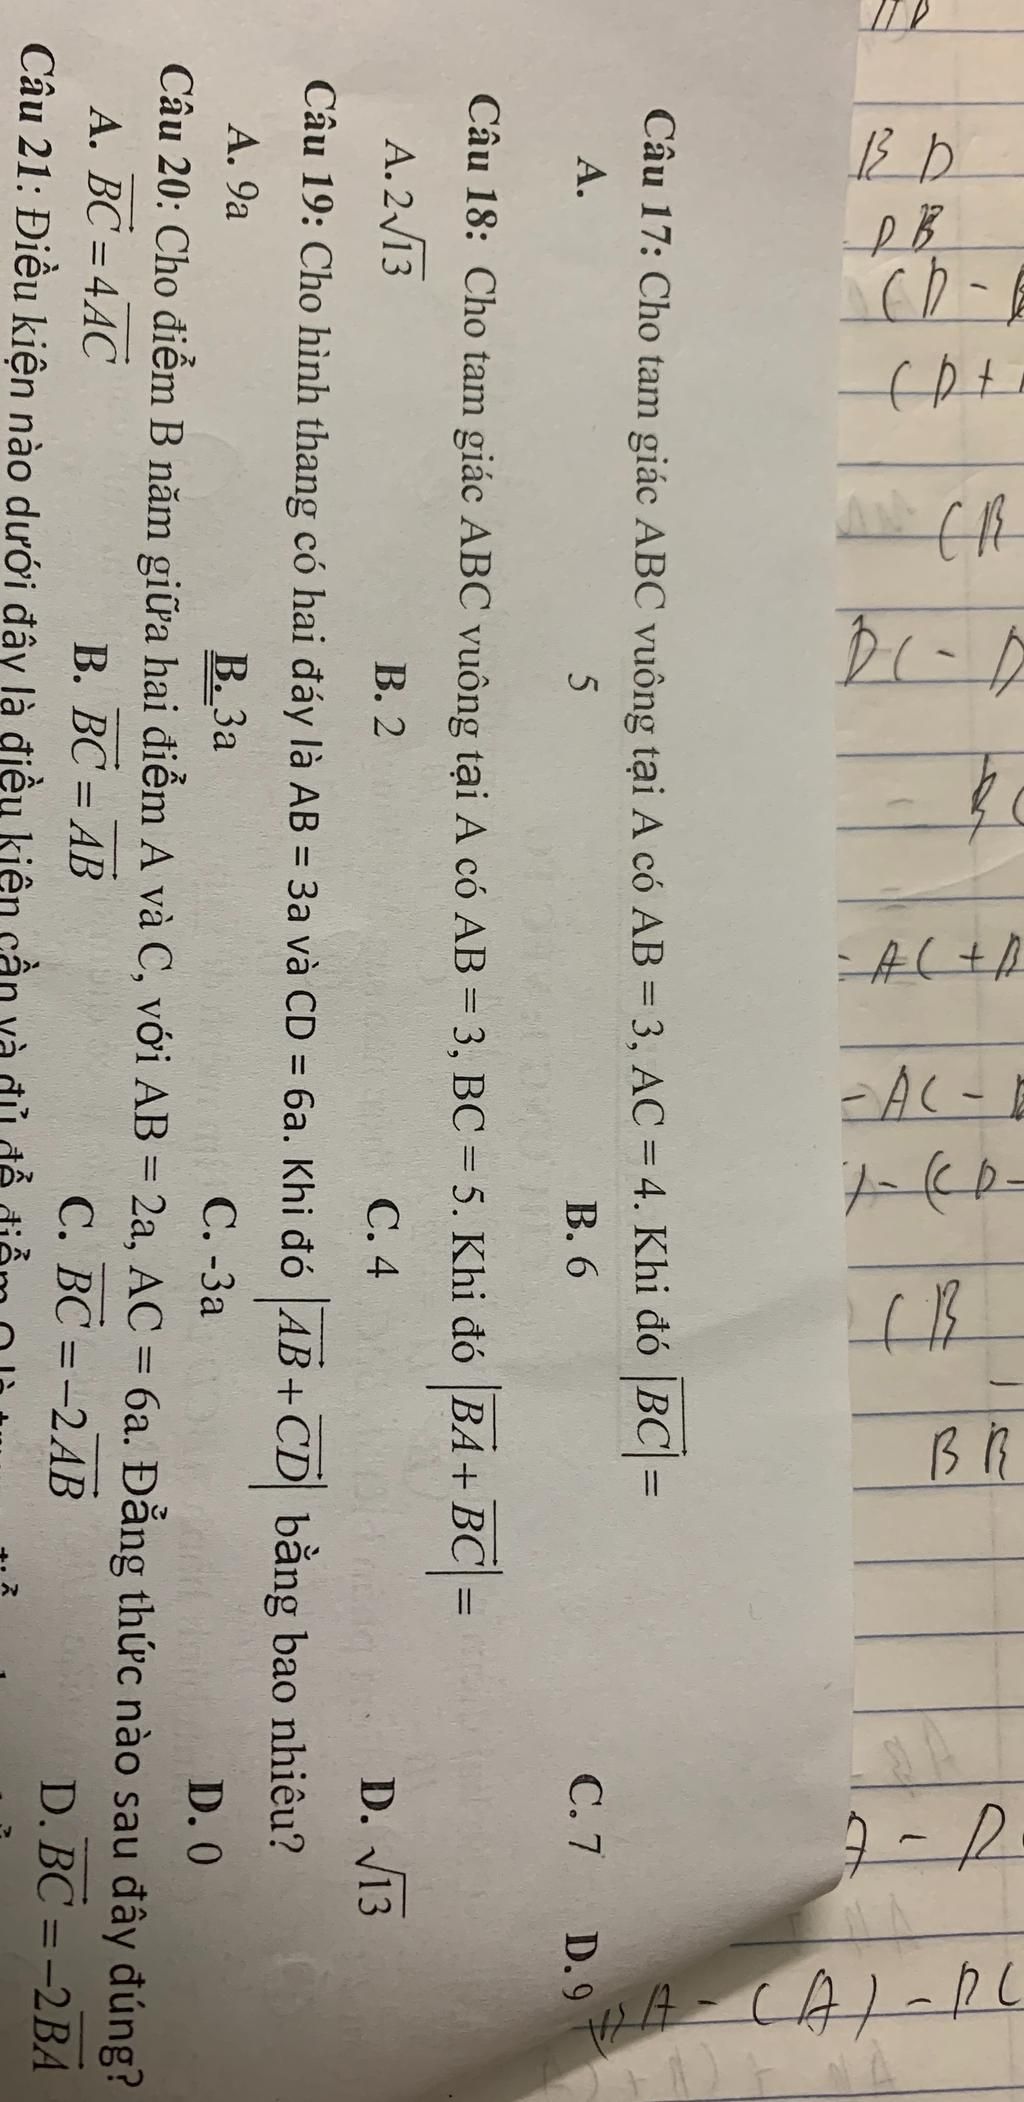 Câu 17: Cho tam giác ABC vuông tại A có AB = 3, AC = 4. Khi đó |BC| =
A. 5 B. 6 C. 7 D. 9
Câu 18: Cho tam giác ABC vuông tại A có AB = 3, BC = 5. Khi đó |BA + BC| =
A. 2√13 B. 2 C. 4 D. √13
Câu 19: Cho hình thang có hai đáy là AB = 3a và CD = 6a. Khi đó |AB + CD| bằng bao nhiêu?
A. 9a B. 3a C. -3a D. 0
Câu 20: Cho điểm B năm giữa hai điểm A và C, với AB = 2a, AC = 6a. Đẳng thức nào sau đây đúng?
A. BC = 4AC B. BC = AB C. BC = −2AB D. BC = −2BA
Câu 21: Điều kiện nào dưới đây là điều kiện cần và đủ để điểm O là
B D
D B
CD -
CD +
CB
DC - D
- AC + B
- AC -
) - (CD -
CB
BB
A - D
BA - CA) - DC